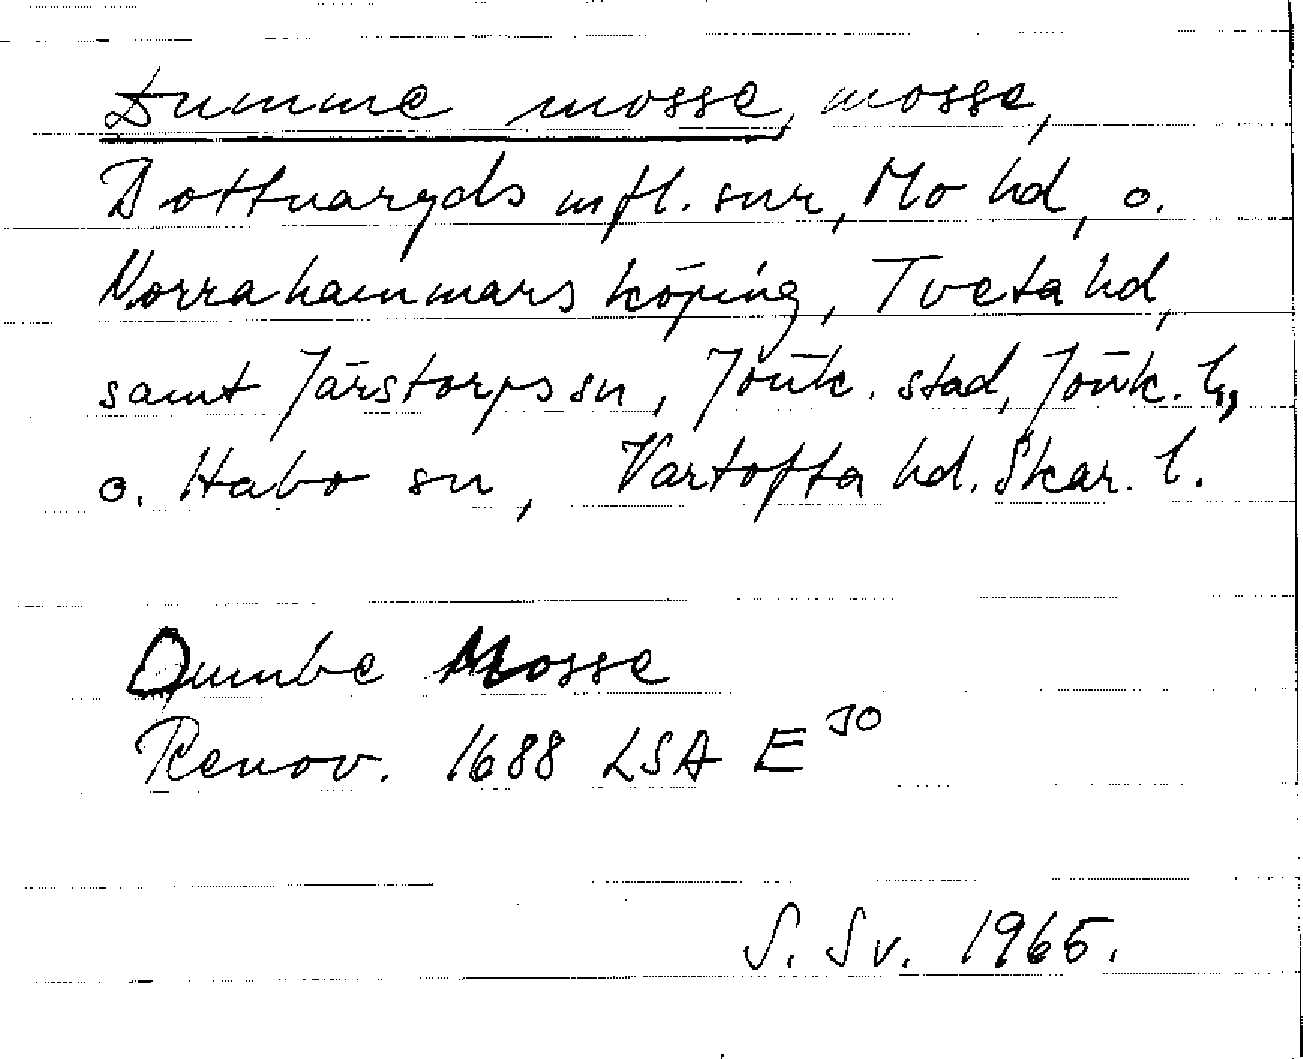 Dumme mosse, mosse,
Bottnaryds mfl. snr, Mo hd, o.
Norrahammars köping, Tveta hd,
samt Järstorps sn, Jönk. stad, Jönk. l.,
o. Habo sn, Vartofta hd. Skar. l.
Dumbe Mosse
Renov. 1688 LSA E 30
S. Sv. 1965.